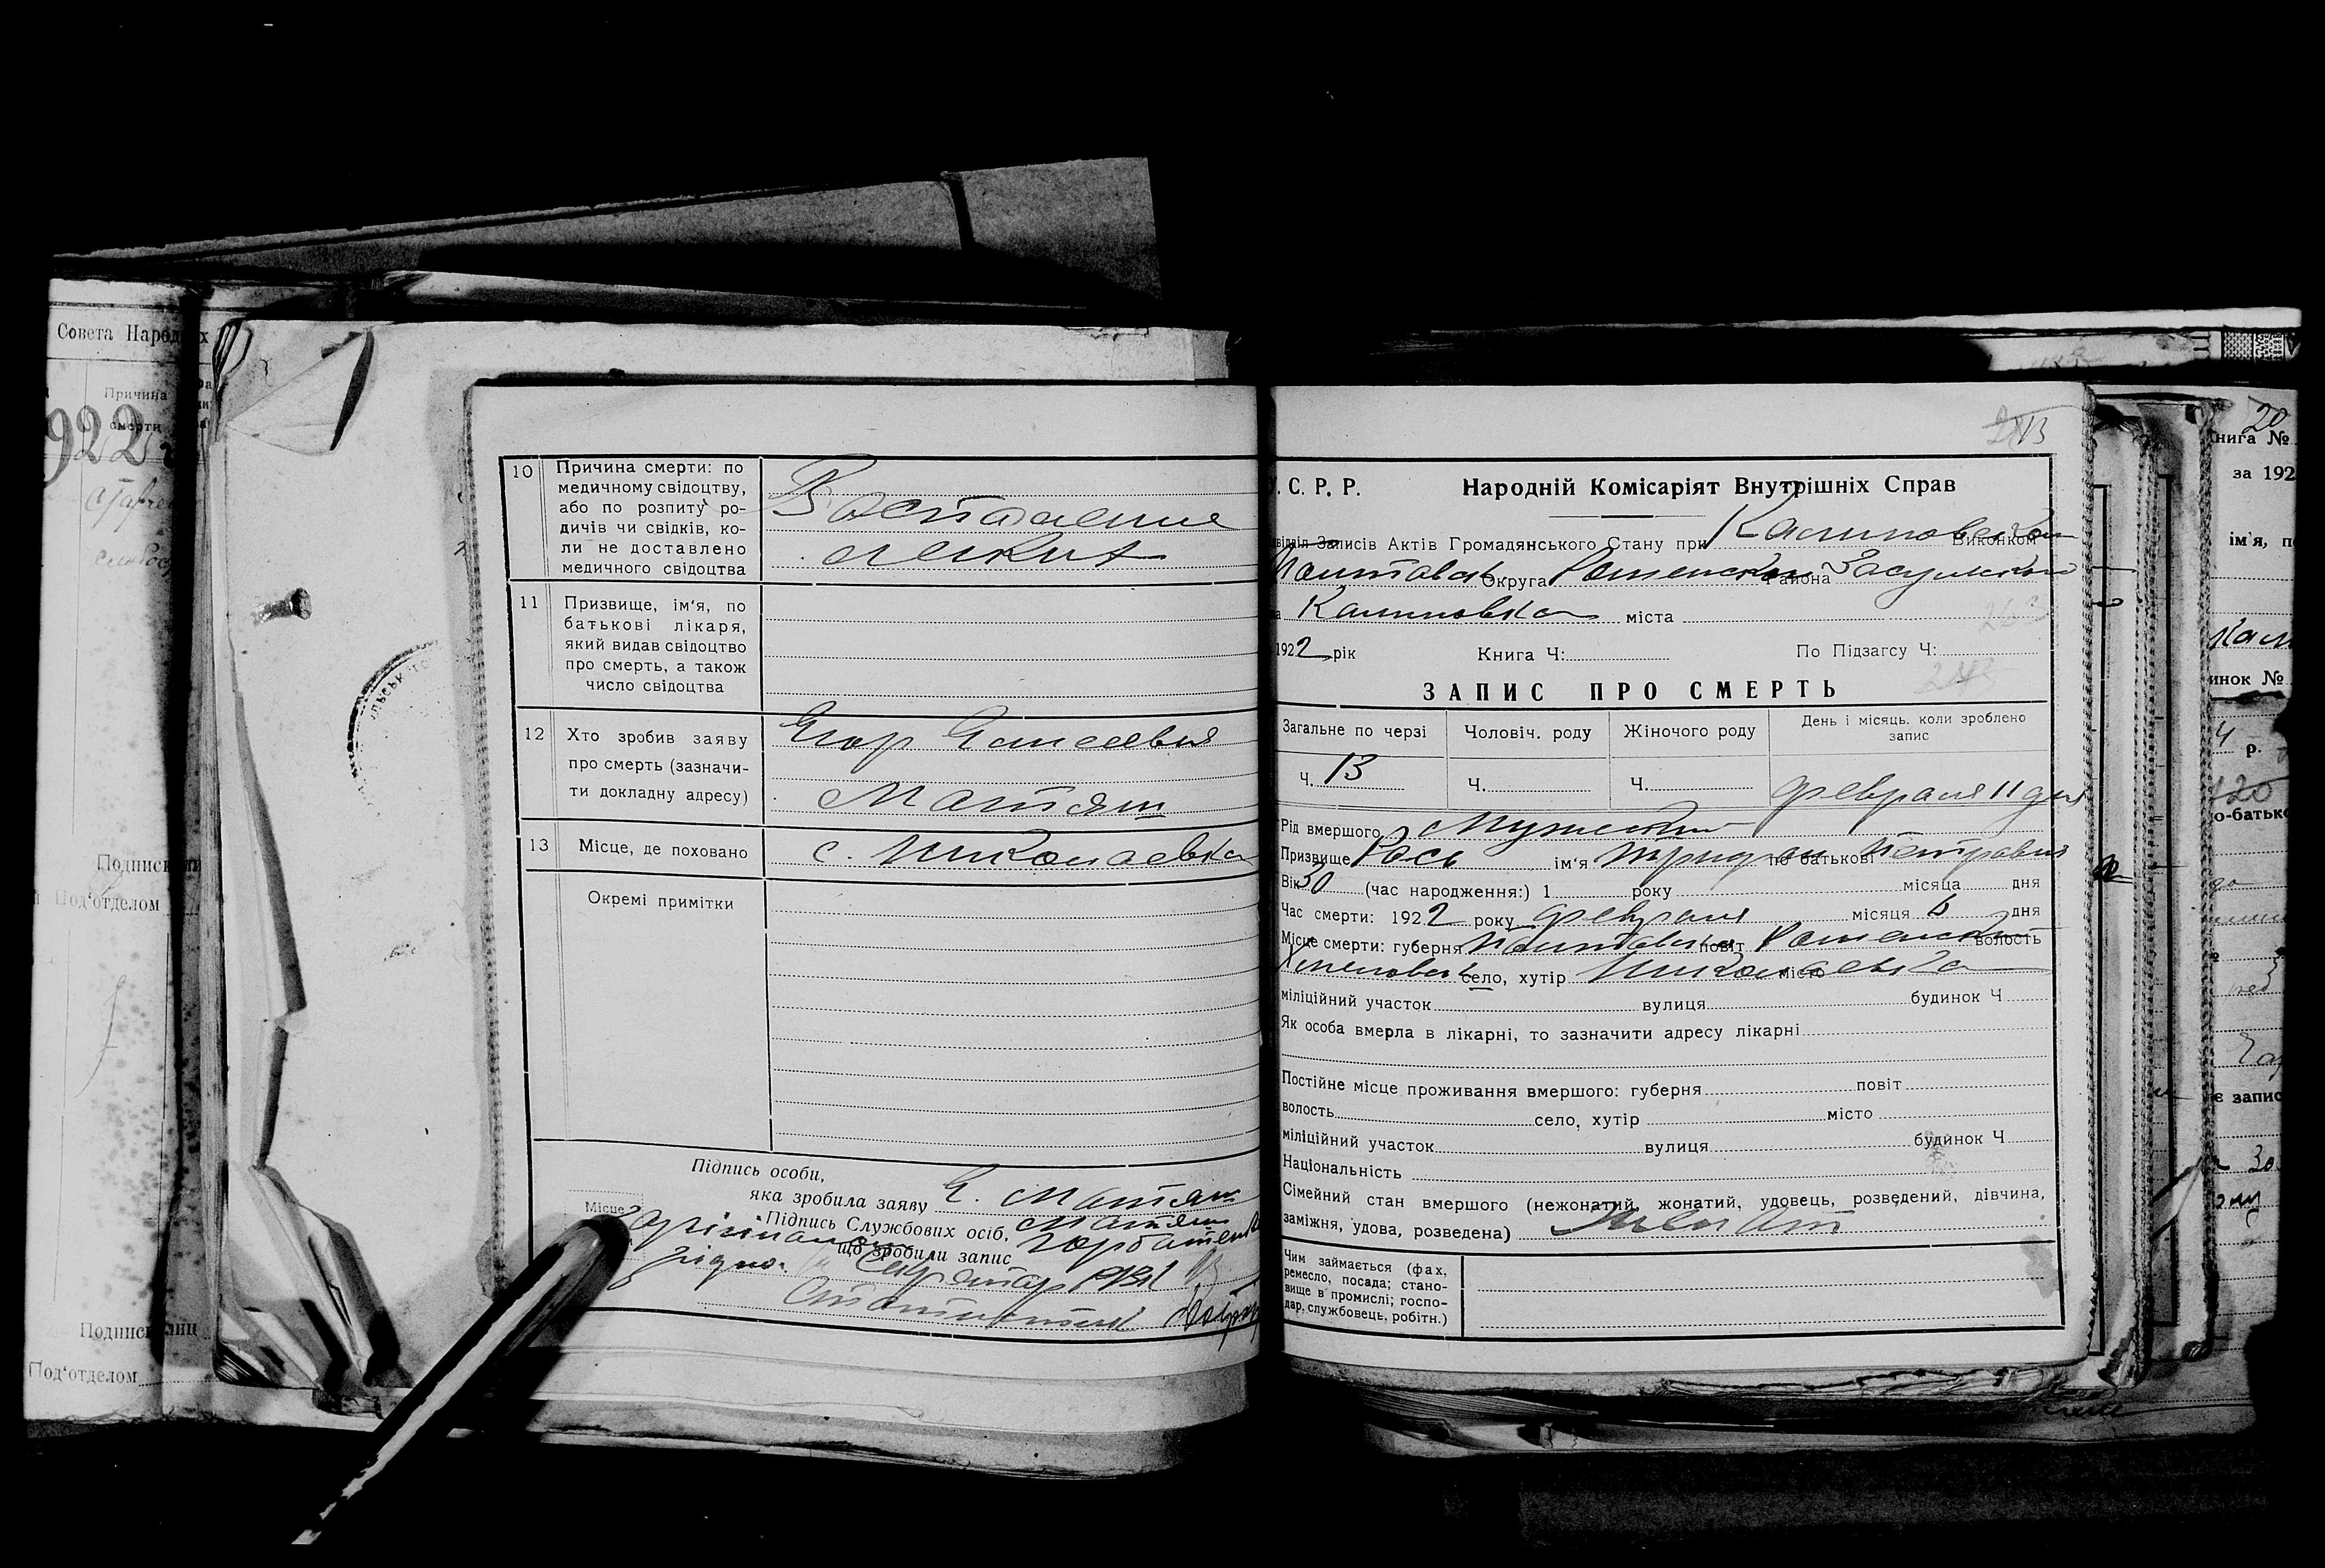 Совета Народ х
Причина
смерти
922
10 Причина смерти: по
медичному свідоцтву,
або по розпиту ро-
дичів чи свідків, ко-
ли не доставлено
медичного свідоцтва
Воспаление
легких
11 Призвище, ім'я, по
батькові лікаря,
який видав свідоцтво
про смерть, а також
число свідоцтва
12 Хто зробив заяву
про смерть (зазначи-
ти докладну адресу)
Егор
Матяш
13 Місце, де поховано с. Николаевка
Окремі примітки
Підпись особи,
яка зробила заяву Е. Матяш
Місце
Підпись Службових осіб, Матяш
що зробили запис Горбатенк
Секретар РВК
Подписи
Под'отделом
Подписи лиц
Под'отделом
13
. С. Р. Р. Народній Комісаріят Внутрішніх Справ
Записів Актів Громадянського Стану при Калиновском Виконком
Полтавск Округа Роменского Района Засульско
Калиновка міста
1922 рік Книга Ч: По Підзагсу Ч:
ЗАПИС ПРО СМЕРТЬ
Загальне по черзі Чоловіч. роду Жіночого роду День і місяць. коли зроблено
запис
Ч. 13 Ч. Ч. февраля 11 дня
Рід вмершого Мужский
Призвище Рось ім'я по батькові Петрович
Вік 30 (час народження:) 1 року місяца дня
Час смерти: 1922 року февраля місяця 6 дня
Місце смерти: губерня Полтавская повіт Роменский волость
село, хутір Николаевка місто
міліційний участок вулиця будинок Ч
Як особа вмерла в лікарні, то зазначити адресу лікарні
Постійне місце проживання вмершого: губерня повіт
волость село, хутір місто
міліційний участок вулиця будинок Ч
Національність
Сімейний стан вмершого (нежонатий, жонатий, удовець, розведений, дівчина,
заміжня, удова, розведена) женат
Чим займається (фах,
ремесло, посада; стано-
вище в промислі; госпо-
дар, службовець, робітн.)
20
нига №
за 192
ім'я, п
инок №
4 р.
120
о-батько
є запис